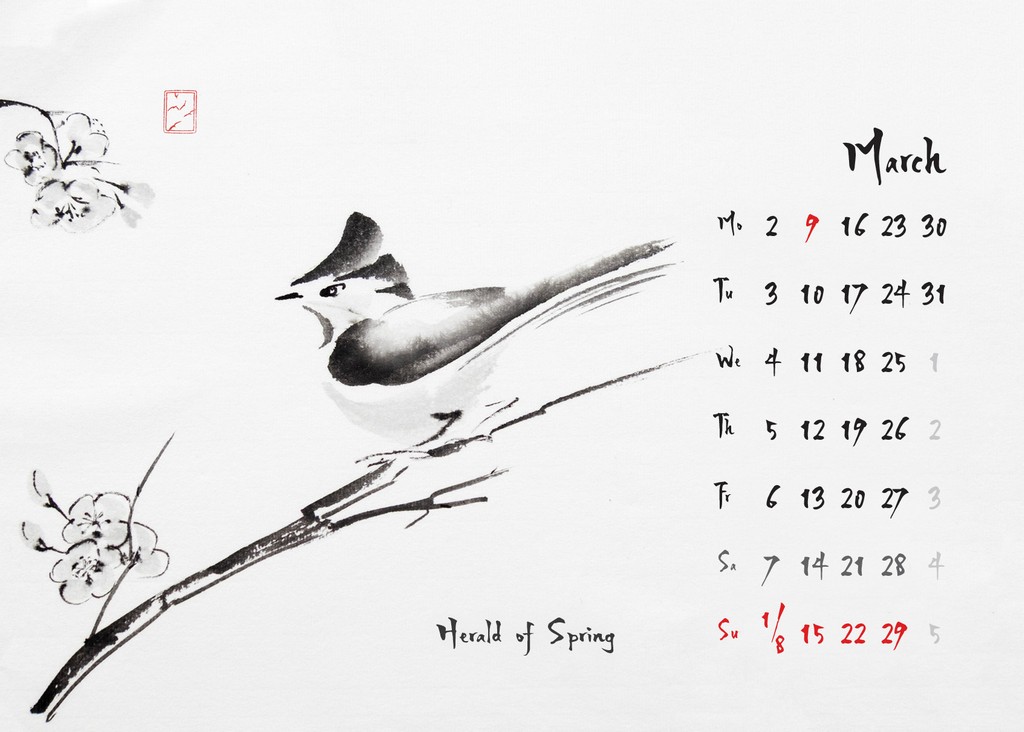 March
Mo 2 9 16 23 30
Tu 3 10 17 24 31
We 4 11 18 25 1
Th 5 12 19 26 2
Fr 6 13 20 27 3
Sa 7 14 21 28 4
Su 1/8 15 22 29 5
Herald of Spring